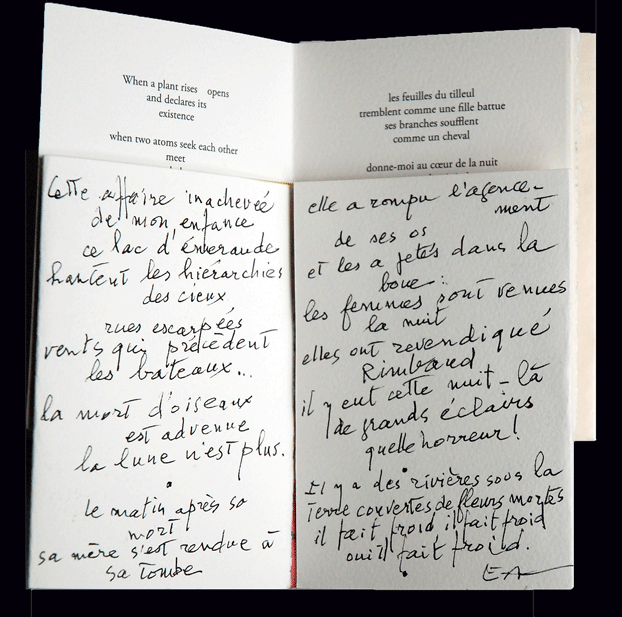 When a plant rises opens
and declares its
existence
when two atoms seek each other
meet
les feuilles du tilleul
tremblent comme une fille battue
ses branches soufflent
comme un cheval
donne-moi au cœur de la nuit
Cette affaire inacheveé
de mon enfance
ce lac d'émeraude
hantent les hiérarchies
des cieux
rues escarpées
vents qui précèdent
les bateaux...
la mort d'oiseaux
est advenue
la lune n'est plus.
le matin après sa
mort
sa mère s'est rendue à
sa tombe
elle a rompu l'agence-
ment
de ses os
et les a jetés dans la
boue :
les femmes sont venues
la nuit
elles ont revendiqué
Rimbaud
il y eut cette nuit-là
de grands éclairs
quelle horreur !
Il y a des rivières sous la
terre couvertes de fleurs mortes
il fait froid il fait froid
oui il fait froid.
EA